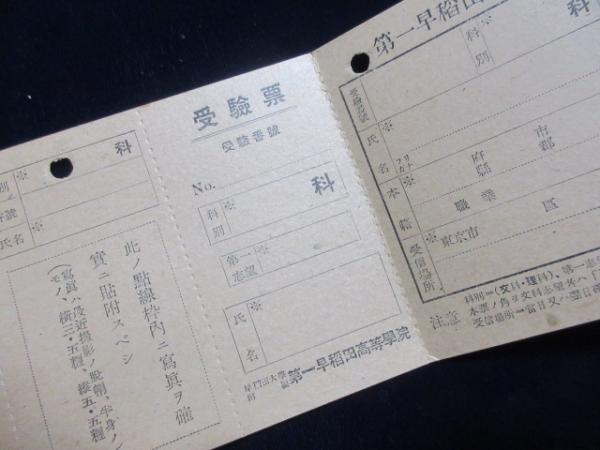 第一早稻田
科
※
科別
受驗番號
氏名
※
フリガナ
本籍
府縣
市郡
職業
受信場所
※
東京市
區
注意
科別＝(文科・理科)、第一志
受驗票
受驗番號
No.
科
科別
※
第一志望
※
氏名
※
早稻田大學附屬
第一早稻田高等學院
科
別
※
號
※
氏名
※
此ノ點線枠內ニ寫眞ヲ確
實ニ貼附スベシ
(寫眞ハ最近撮影ノ脫帽、半身ノ
モノ、橫三・五糎、縱五・五糎